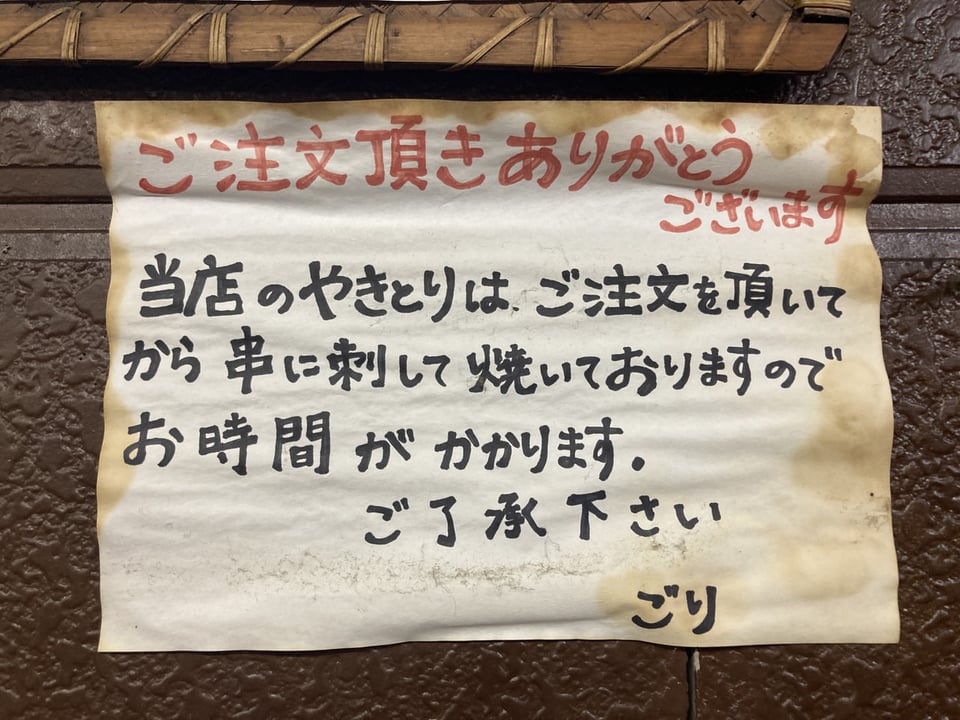 ご注文頂きありがとう
ございます
当店のやきとりは、ご注文を頂いて
から串に刺して焼いておりますので
お時間がかかります。
ご了承下さい
ごり